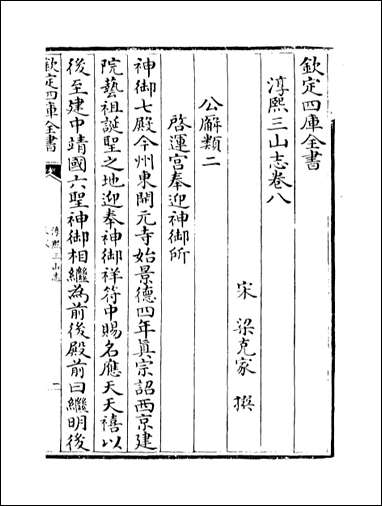 欽定四庫全書
淳熙三山志卷八
宋 梁克家 撰
公廨類二
啓運宮奉迎神御所
神御七殿今州東開元寺始景德四年真宗詔西京建
院藝祖誕聖之地迎奉神御祥符中賜名應天天禧以
後至建中靖國六聖神御相繼為前後殿前曰繼明後
欽定四庫全書
淳熙三山志
卷八